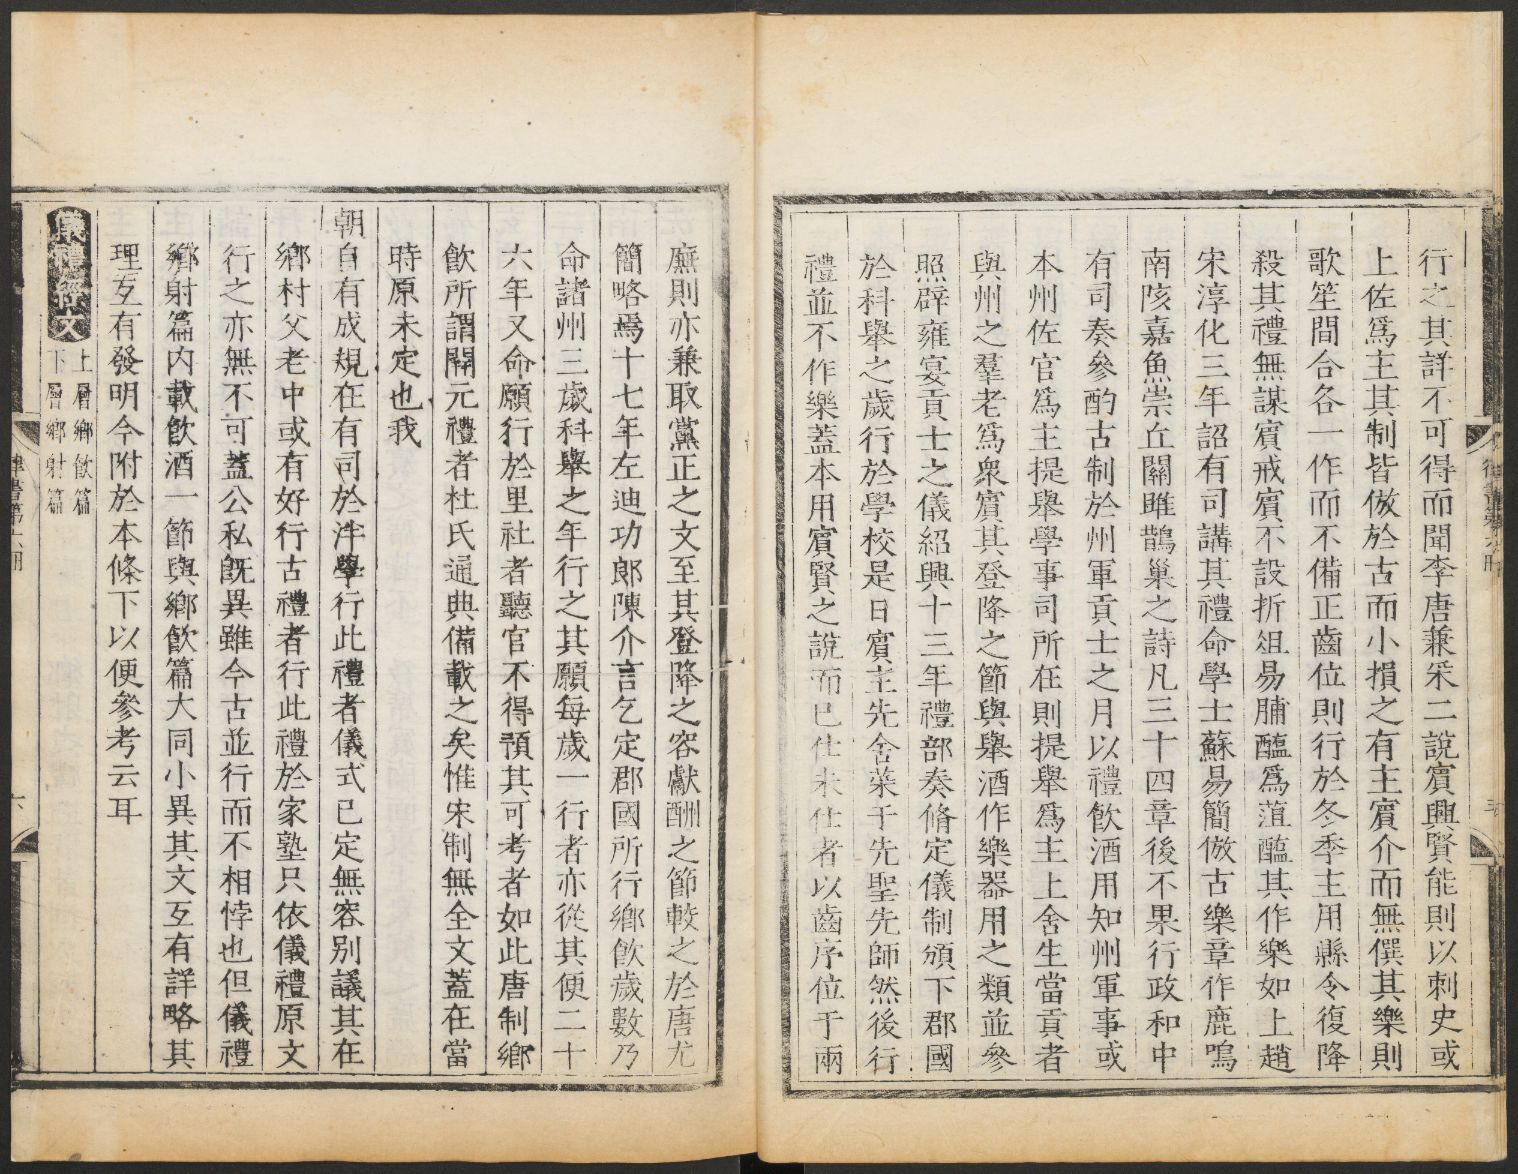 行之其詳不可得而聞李唐兼采二說賓興賢能則以刺史或
上佐爲主其制皆倣於古而小損之有主賓介而無僎其樂則
歌笙間合各一作而不備正齒位則行於冬季主用縣令復降
殺其禮無謀賓戒賓不設折俎易脯醢爲菹醢其作樂如上趙
宋淳化三年詔有司講其禮命學士蘇易簡倣古樂章作鹿鳴
南陔嘉魚崇丘關雎鵲巢之詩凡三十四章後不果行政和中
有司奏參酌古制於州軍貢士之月以禮飲酒用知州軍事或
本州佐官爲主提舉學事司所在則提舉爲主上舍生當貢者
與州之羣老爲衆賓其登降之節與舉酒作樂器用之類並參
照辟雍宴貢士之儀紹興十三年禮部奏脩定儀制頒下郡國
於科舉之歲行於學校是日賓主先舍菜于先聖先師然後行
禮並不作樂蓋本用賓賢之說而已仕未仕者以齒序位于兩
廡則亦兼取黨正之文至其登降之容獻酬之節較之於唐尤
簡略焉十七年左迪功郎陳介言乞定郡國所行鄉飲歲數乃
命諸州三歲科舉之年行之其願每歲一行者亦從其便二十
六年又命願行於里社者聽官不得預其可考者如此唐制鄉
飲所謂開元禮者杜氏通典備載之矣惟宋制無全文蓋在當
時原未定也我
朝自有成規在有司於泮學行此禮者儀式已定無容别議其在
鄉村父老中或有好行古禮者行此禮於家塾只依儀禮原文
行之亦無不可蓋公私旣異雖今古並行而不相悖也但儀禮
鄉射篇内載飲酒一節與鄉飲篇大同小異其文互有詳略其
理互有發明今附於本條下以便參考云耳
儀禮經文
上層鄉飲篇
下層鄉射篇
六